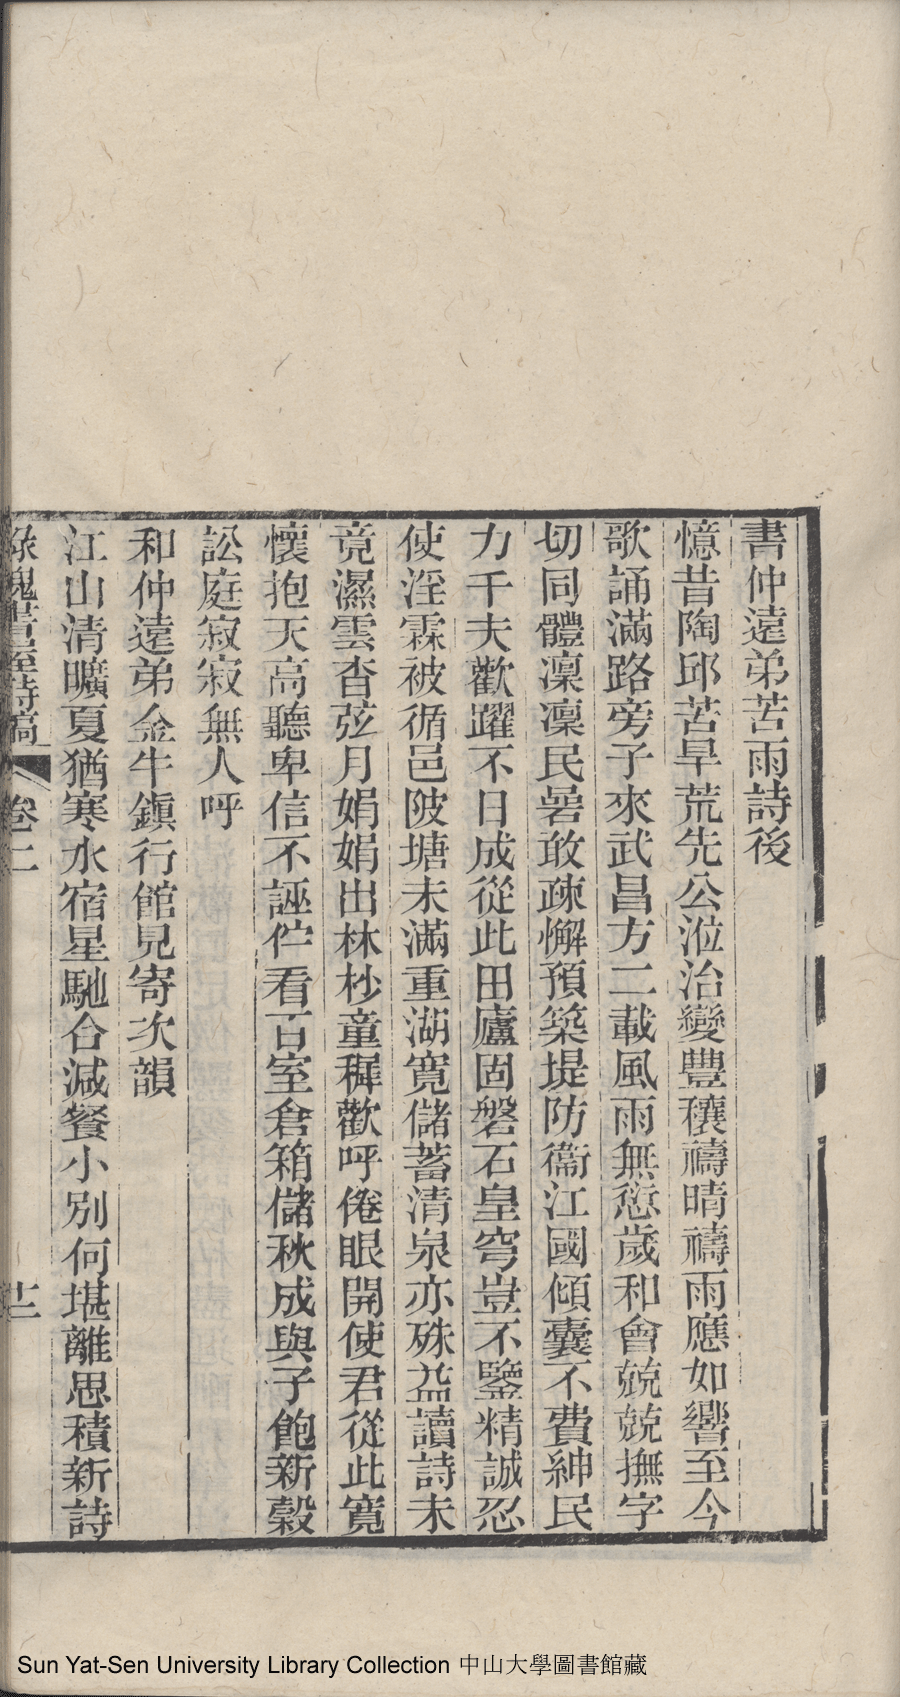 書仲遠弟苦雨詩後
憶昔陶邱苦旱荒先公涖治變豐穰禱晴禱雨應如響至今
歌誦滿路旁子來武昌方二載風雨無愆歲和會兢兢撫字
切同體凜凜民碞敢疎懈預築堤防衞江國傾囊不費紳民
力千夫歡躍不日成從此田廬固磐石皇穹豈不鑒精誠忍
使淫霖被循邑陂塘未滿重湖寬儲蓄清泉亦殊益讀詩未
竟濕雲杳弦月娟娟出林杪童穉歡呼倦眼開使君從此寬
懷抱天高聽卑信不誣佇看百室倉箱儲秋成與子飽新穀
訟庭寂寂無人呼
和仲遠弟金牛鎭行館見寄次韻
江山清曠夏猶寒水宿星馳合減餐小別何堪離思積新詩
綠槐書屋詩稿 卷二 十二
Sun Yat-Sen University Library Collection 中山大學圖書館藏